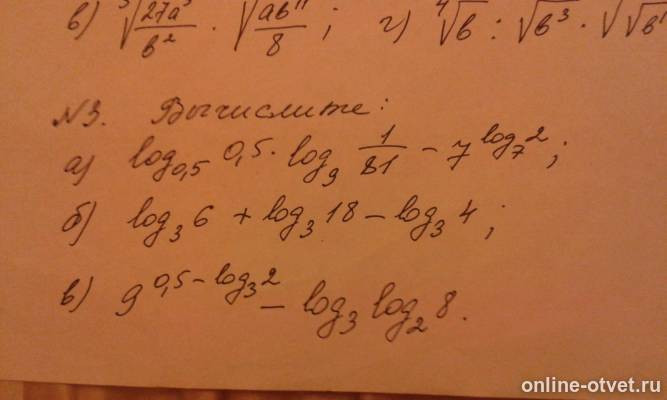 в) ∛(27a³/b²) · √(ab¹¹/8) ; г) ⁴√b : √b³ · √√b
№3. Вычислите:
а) log₀,₅ 0,5 · log₉ 1/81 − 7^(log₇2) ;
б) log₃6 + log₃18 − log₃4 ;
в) 9^(0,5 − log₃2) − log₃ log₂ 8.
online-otvet.ru